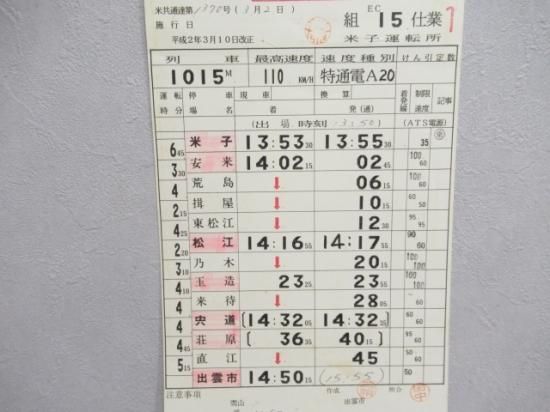 米共通達第1370号(3月2日)
施行日
平成2年3月10日改正
EC
組 15 仕業 1
米子運転所
列車 最高速度 速度種別 けん引定数
1015M 110 KM/H 特通電A20
運転時分 停車場名 現車 着 換算 発(通) 着発線 制限速度 記事
(出場時刻 13:50) (ATS電源)
米子 13:53 30 13:55 30 35
6 45
安来 14:02 15 02 45 100 60
3 30
荒島 ↓ 06 15 100
4
揖屋 ↓ 10 15 60
2 15
東松江 ↓ 12 30 95 95
4 25
松江 14:16 55 14:17 55 90 60
2 20
乃木 ↓ 20 15 100
3 10
玉造 23 25 23 55 100 100
4 10
来待 ↓ 28 05 60 60
4
宍道 [14:32 05 14:32 35] 60 60
4
荘原 [36 35 40 15] 60
5 15
直江 ↓ 45 60
出雲市 14:50 15 (15:55) 50
注意事項 作成 照合
出雲市